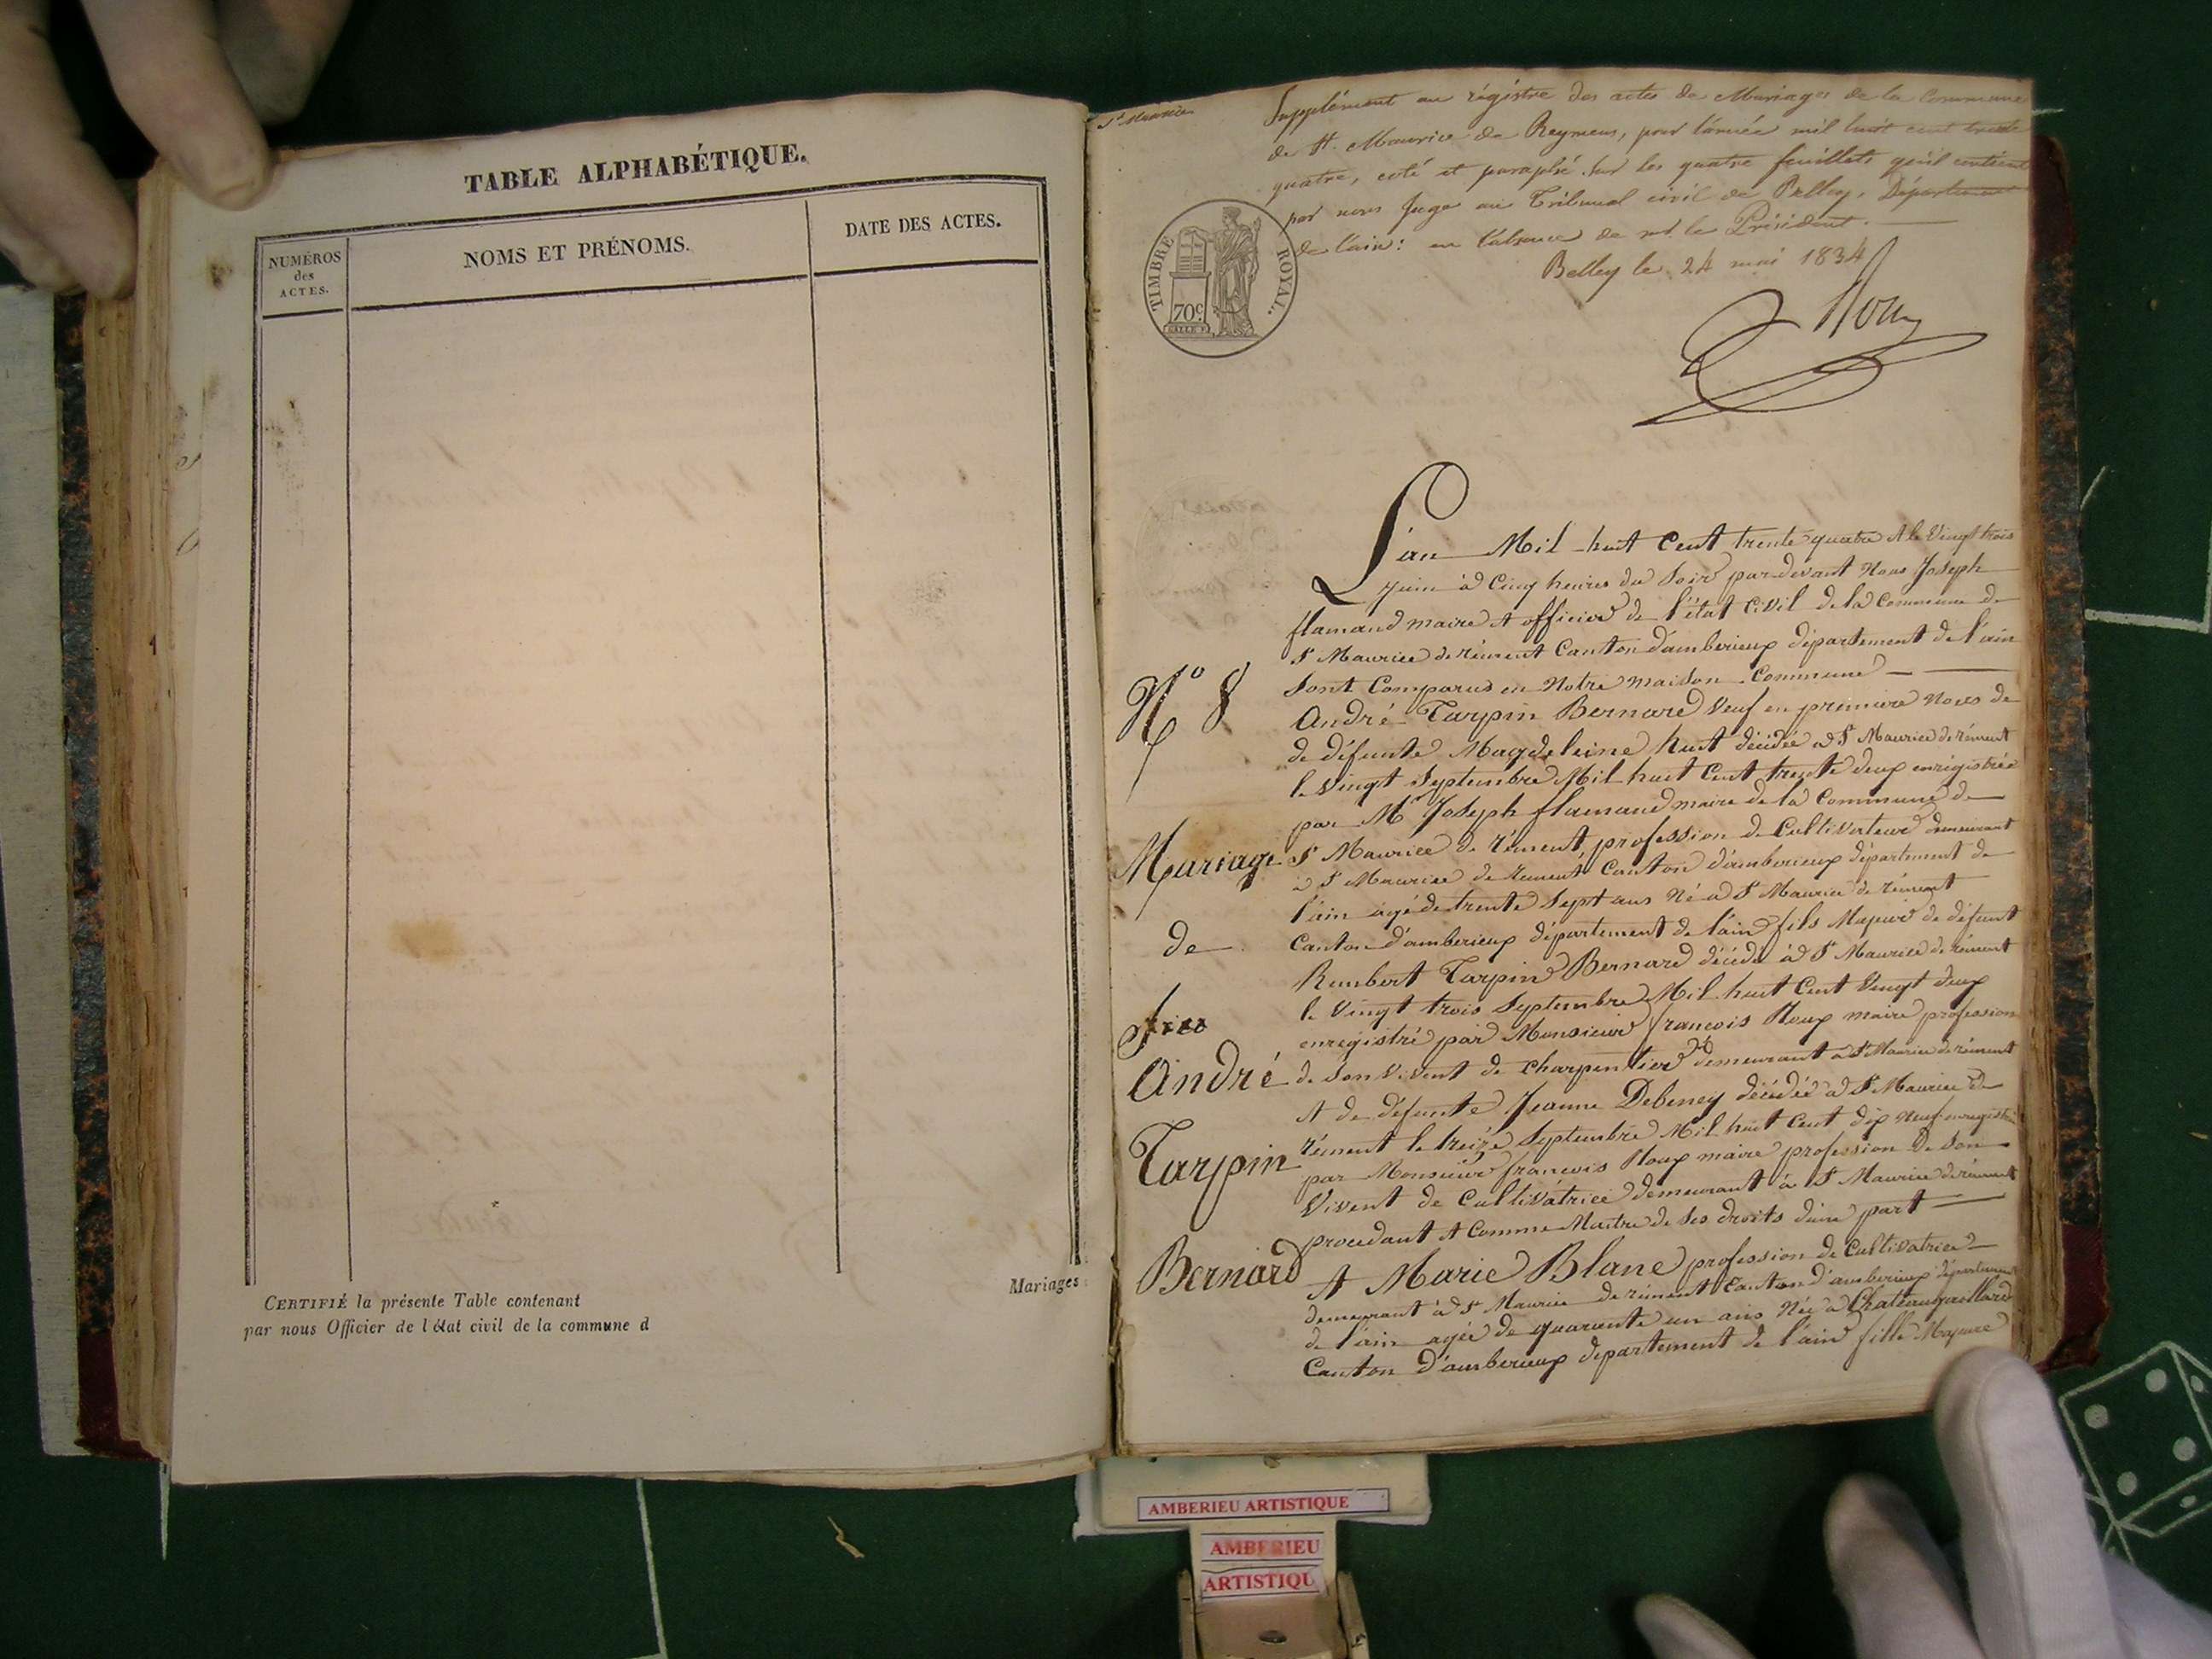 TABLE ALPHABÉTIQUE.
NUMÉROS
des
ACTES.
NOMS ET PRÉNOMS.
DATE DES ACTES.
Mariages
CERTIFIÉ la présente Table contenant
par nous Officier de l'état civil de la commune d
St Maurice
Supplément au régistre des actes de Mariages de la Commune
de St. Maurice de Reymens, pour l'année mil huit cent trente
quatre, coté et paraphé sur les quatre feuillets qu'il contient
par nous Juge au Tribunal civil de Belley, Département
de l'ain: en l'absence de mr. le Président.
Belley le 24 mai 1834
TIMBRE ROYAL.
70c
L'an Mil huit Cent trente quatre et le Vingt trois
Juin à Cinq heures du Soir par devant Nous Joseph
flamand maire et officier de l'état Civil de la Commune de
St Maurice de rément Canton d'amberieux département de l'ain
Sont Comparus en Notre maison Commune
André Tarpin Bernard Veuf en premiere Noces de
de défunte Magdeleine huit décédée à St Maurice de rément
le Vingt Septembre Mil huit Cent trente deux enrigistrée
par Mr Joseph flamand maire de la Commune de
St Maurice de rément, profession de Cultivateur demeurant
à St Maurice de rement Canton d'amberieux département de
l'ain agé de trente Sept ans Né à St Maurice de rément
Canton d'amberieux département de l'ain fils Majeur de défunt
Rambert Tarpin Bernard décédé à St Maurice de rément
le Vingt trois Septembre Mil huit Cent Vingt deux
enregistré par Monsieur francois Roux maire profession
de Son Vivent de charpentier demeurant à St Maurice de rément
et de défunte Jeanne Debeney décédée à St Maurice de
rément le treize Septembre Mil huit Cent dix neuf enregistré
par Monsieur francois Roux maire profession De Son
Vivent de Cultivatrice demeurant à St Maurice de rément
procedant et Comme Maître de Ses droits d'une part
et Marie Blanc profession de Cultivatrice
demeurant à St Maurice de rément Canton d'amberieux département
de l'ain agée de quarante un ans Née à Chateaugaillard
Canton d'amberieux departement de l'ain fille Majeure
No 8
Mariage
de
André
Tarpin
Bernard
AMBERIEU ARTISTIQUE
AMBERIEU
ARTISTIQU